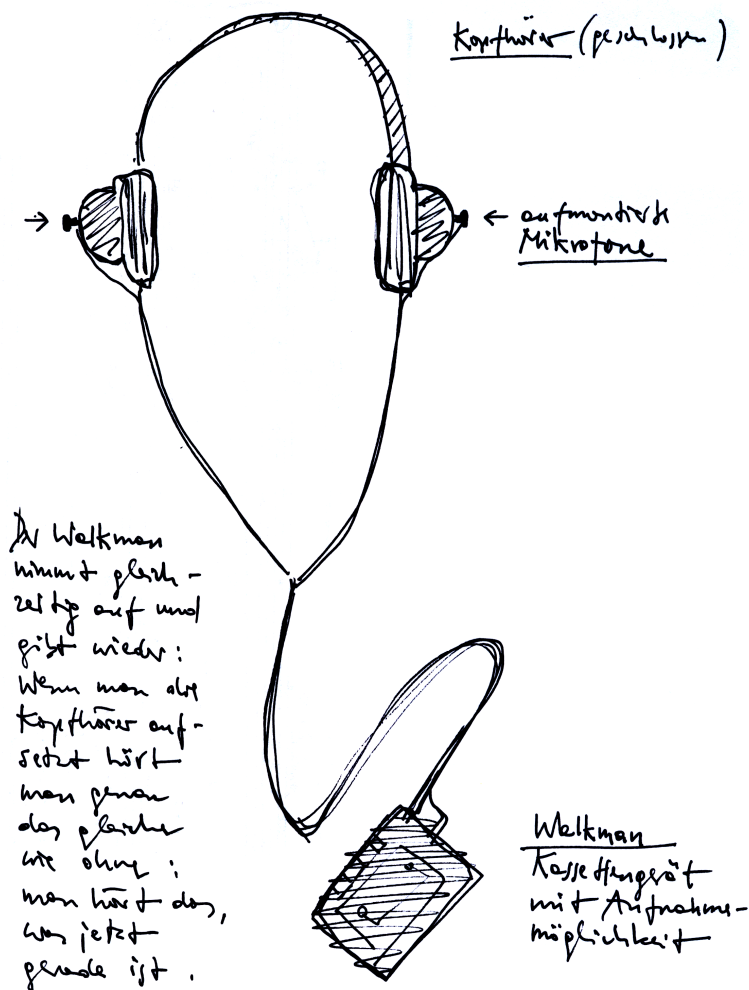 Kopfhörer (geschlossen)
aufmontierte
Mikrofone
Der Walkman
nimmt gleich-
zeitig auf und
gibt wieder:
Wenn man die
Kopfhörer auf-
setzt hört
man genau
das gleiche
wie ohne:
man hört das,
was jetzt
gerade ist.
Walkman
Kassettengerät
mit Aufnahme-
möglichkeit